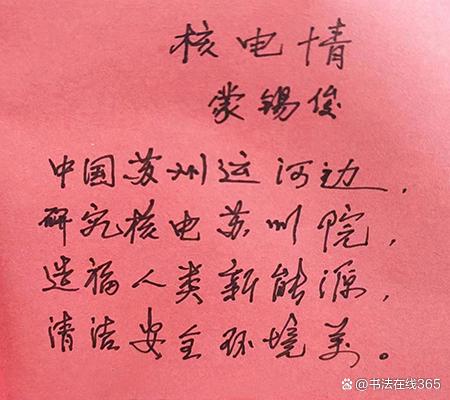 核电情
蒙锡俊
中国苏州运河边，
研究核电苏州院，
造福人类新能源，
清洁安全环境美。
书法在线365